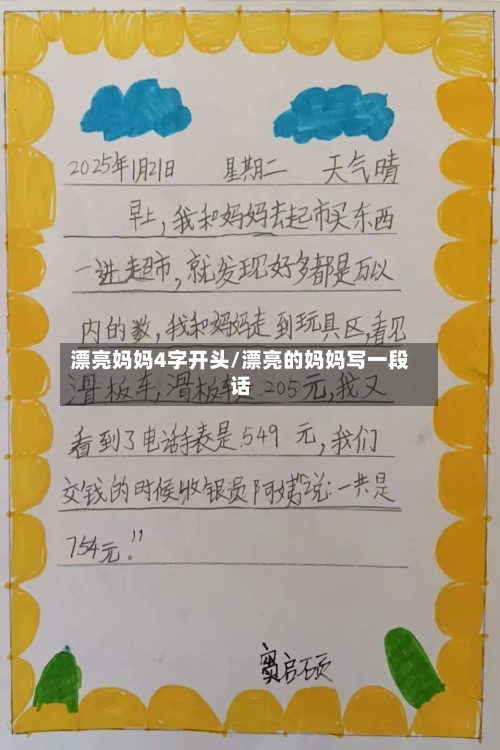 2025年1月21日 星期二 天气晴
早上,我和妈妈去起市买东西
一进超市,就发现好多都是万以
内的数,我和妈妈走到玩具区,看见
漂亮妈妈4字开头/漂亮的妈妈写一段
话
滑板车,滑板车是205元,我又
看到了电话手表是549元,我们
交钱的时候收银员阿姨说:一共是
754元。”